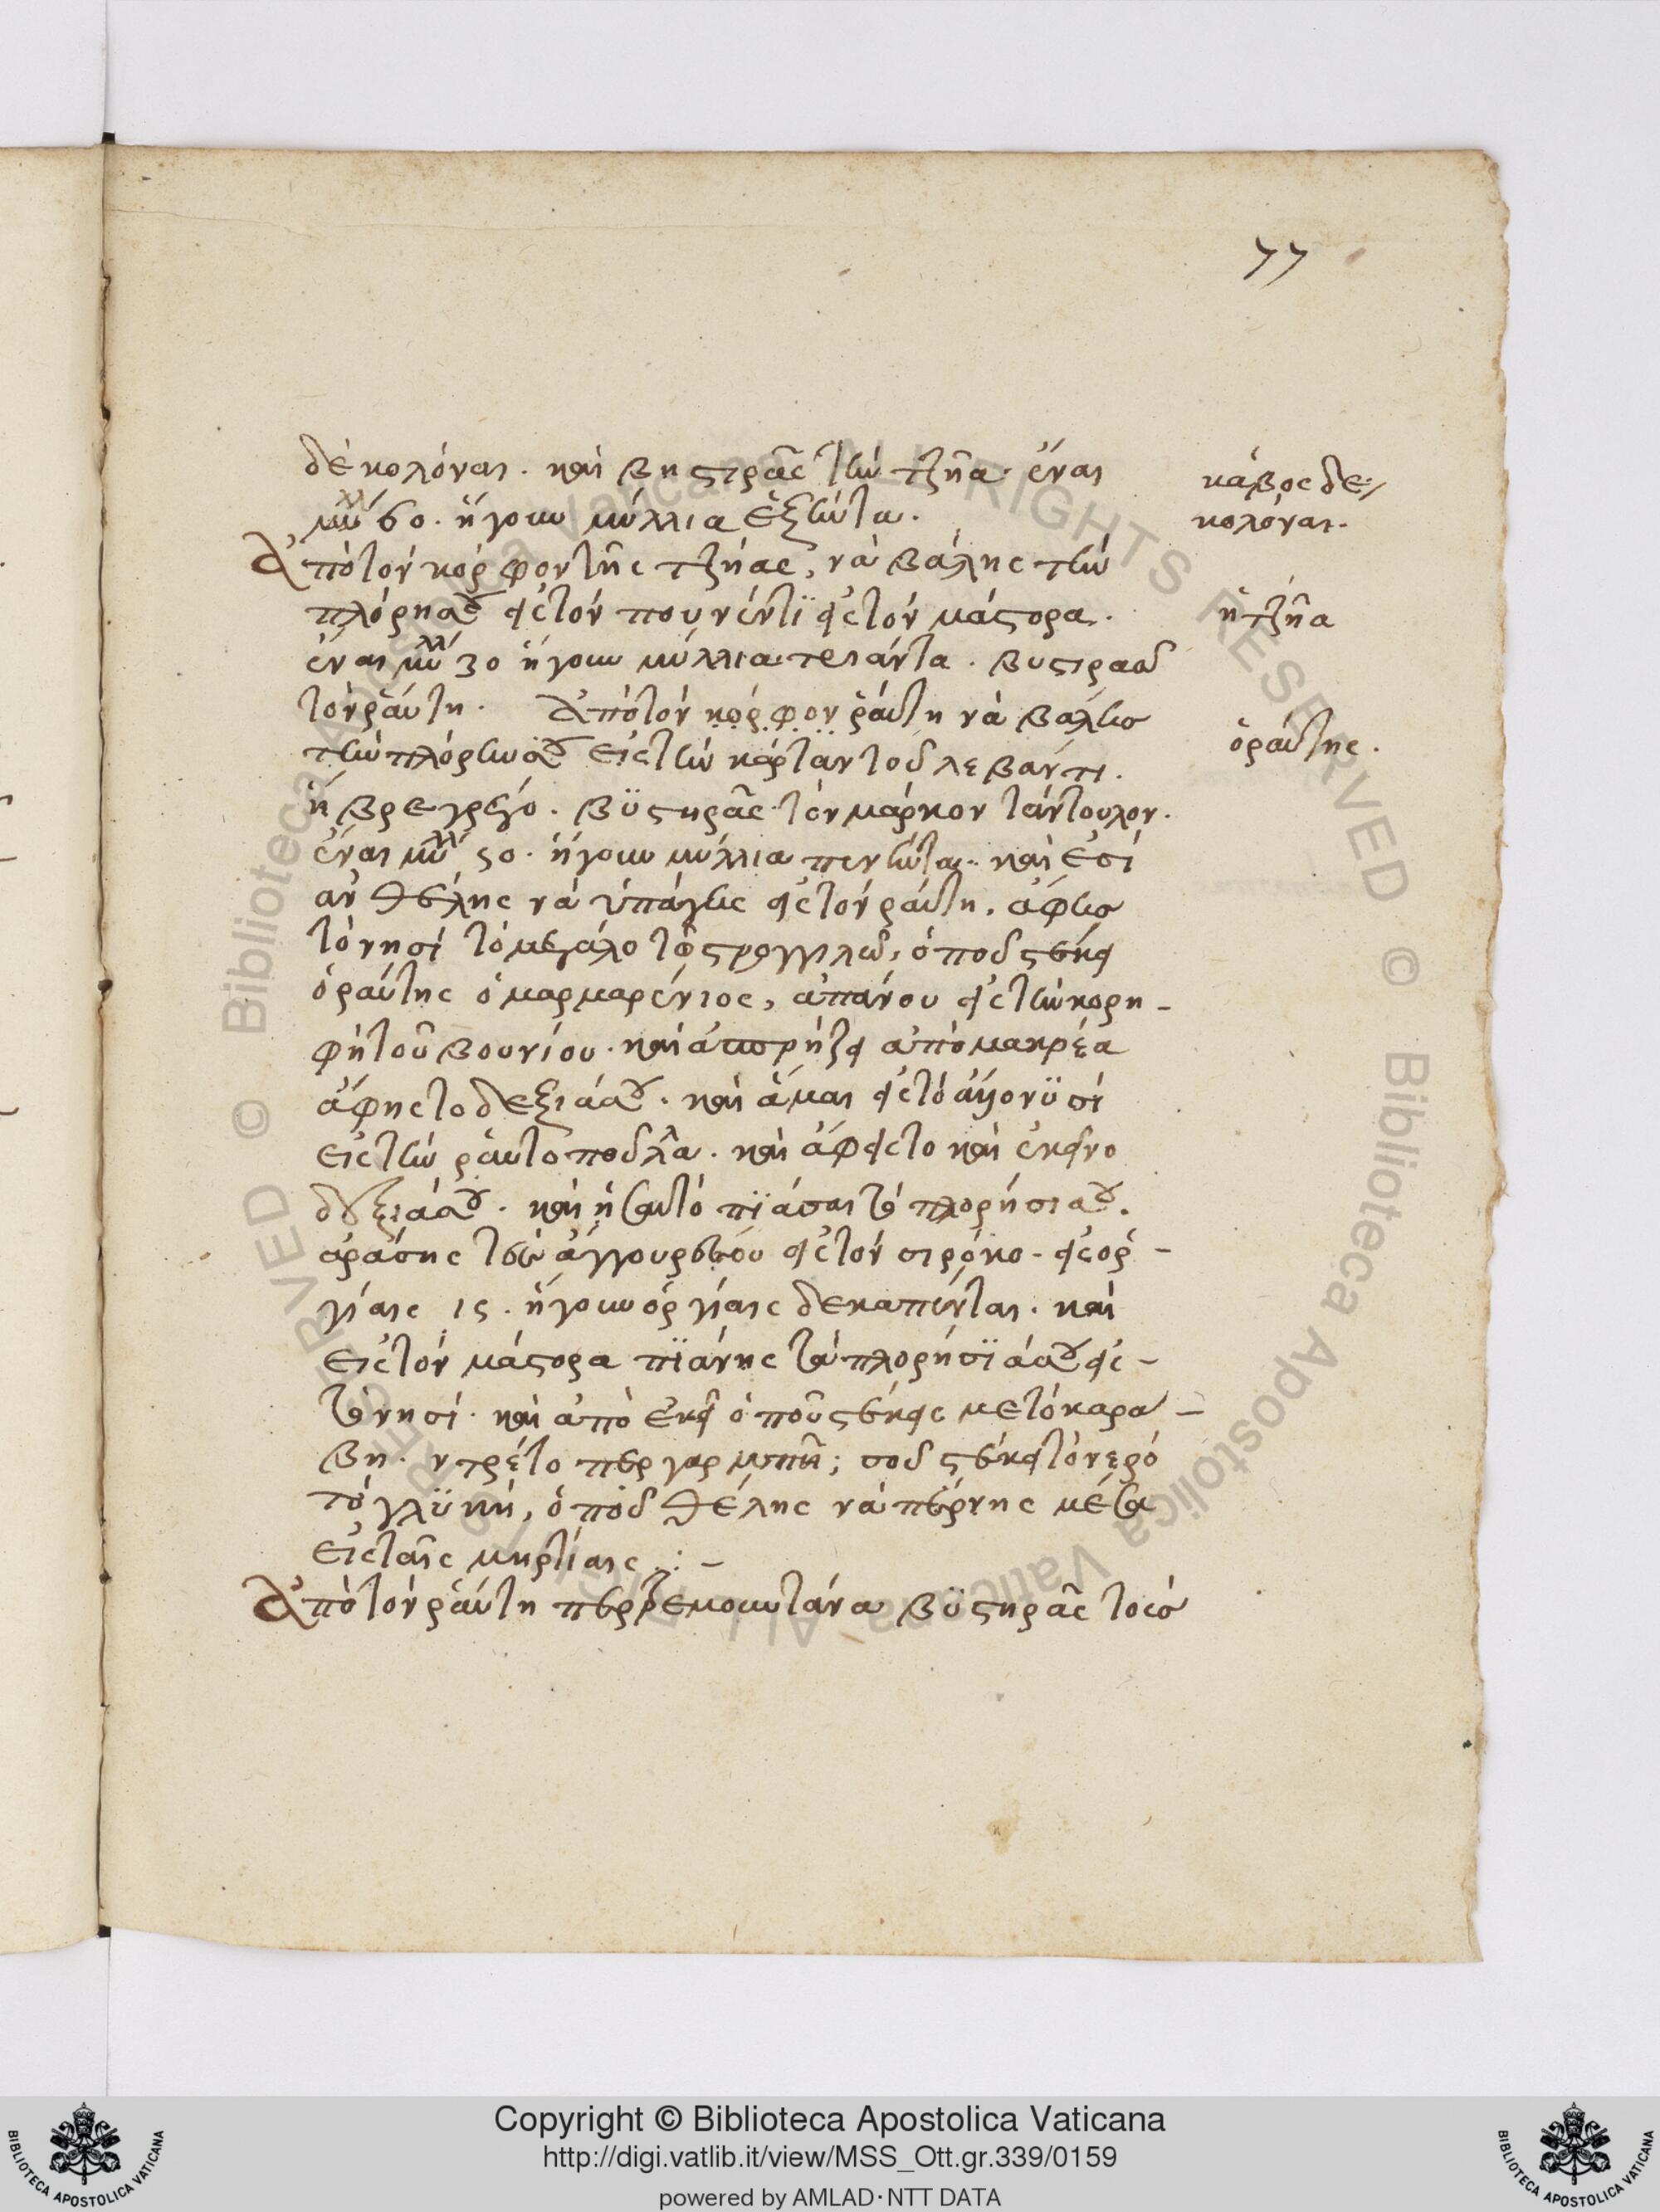 77
δὲ κολόναι. καὶ βηστιρᾶς τὴν τζῆα. ἔναι
μύλλ 60. ἤγουν μύλλια ἑξῆντα.
Ἀπὸ τὸν κόρφον τῆς τζήας, νὰ βάλης τὴν
πλόρησου εἰς τὸν πουνέντι εἰς τὸν μάστορα.
ἔναι μύλλ 30 ἤγουν μύλλια τριάντα. βυστιρασ
τὸν ῥάυτη. Ἀπὸ τὸν κόρφον ῥάυτη νὰ βάλης
τὴν πλόρην σου εἰς τὴν κάρταν τοῦ λεβάντι.
ἢ βρε γρέγο. βϋστηρᾶς τὸν μάρκον τάντουλον.
ἔναι μύλλ 50. ἤγουν μύλλια πενῆντα. καὶ ἐσὶ
ἂν θέλης νὰ ὑπάγης εἰς τὸν ῥάυτη. ἄφησ
τὸ νησὶ τὸ μεγάλο τὸ στρογγιλὸ, ὁποῦ στέκει
ὁ ῥάυτης ὁ μαρμαρένιος, ἀπάνου εἰς τὴν κορη-
φὴ τοῦ βουνίου. καὶ ἀσπρήζει ἀπὸ μακρέα
ἄφησ το δεξιάσου. καὶ ἄμαι εἰς τὸ ἄλλο νϋσὶ
εἰς τὴν ῥάυτοποῦλα. καὶ ἄφεις το καὶ ἐκεῖνο
δεξιάσου. καὶ ἠς αὐτὸ πϊάσαι τὸ πλορήσισου.
ἀράσης τὸν ἄγγουρσου εἰς τὸν σιρόκο. εἰς ὀρ-
γίαις 15. ἤγουν ὀργίαις δεκαπένται. καὶ
εἰς τὸν μάστορα πϊάνης τὸ πλορήσϊάσου εἰς
τὸ νησί. καὶ ἀπὸ ἐκεῖ ὁποῦ στέκεις μετὸ καρα-
βη. ντρέτο περ γαρμπῆ; σοῦ στέκει τὸ νερό
τὸ γλϋκή, ὁποῦ θέλης νὰ πέρνης μέσα
εἰς ταῖς μηρτίαις .:-
Ἀπὸ τὸν ῥάυτη περ τρεμουντάνα βϋστηρᾶς τοὺσ
κάβος δε
κολόναι.
ἡ τζῆα
ὁ ράυτης.
Copyright © Biblioteca Apostolica Vaticana
http://digi.vatlib.it/view/MSS_Ott.gr.339/0159
powered by AMLAD·NTT DATA
BIBLIOTECA APOSTOLICA VATICANA
BIBLIOTECA APOSTOLICA VATICANA
Biblioteca Apostolica Vaticana ALL RIGHTS RESERVED © Biblioteca Apostolica Vaticana ALL RIGHTS RESERVED ©